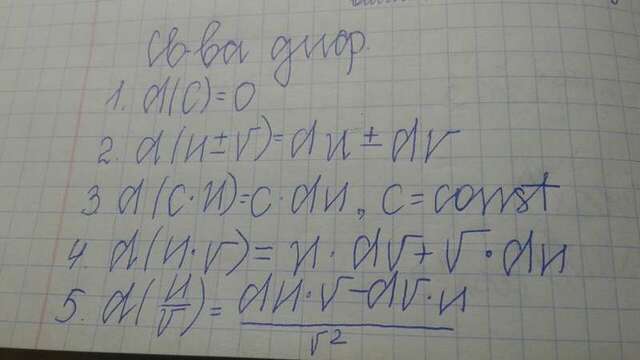 св-ва диф.
1. d(C)=0
2. d(u±v)=du±dv
3 d(c·u)=c·du, c=const
4. d(u·v)=u·dv+v·du
5. d(u/v)=(du·v-dv·u)/v²